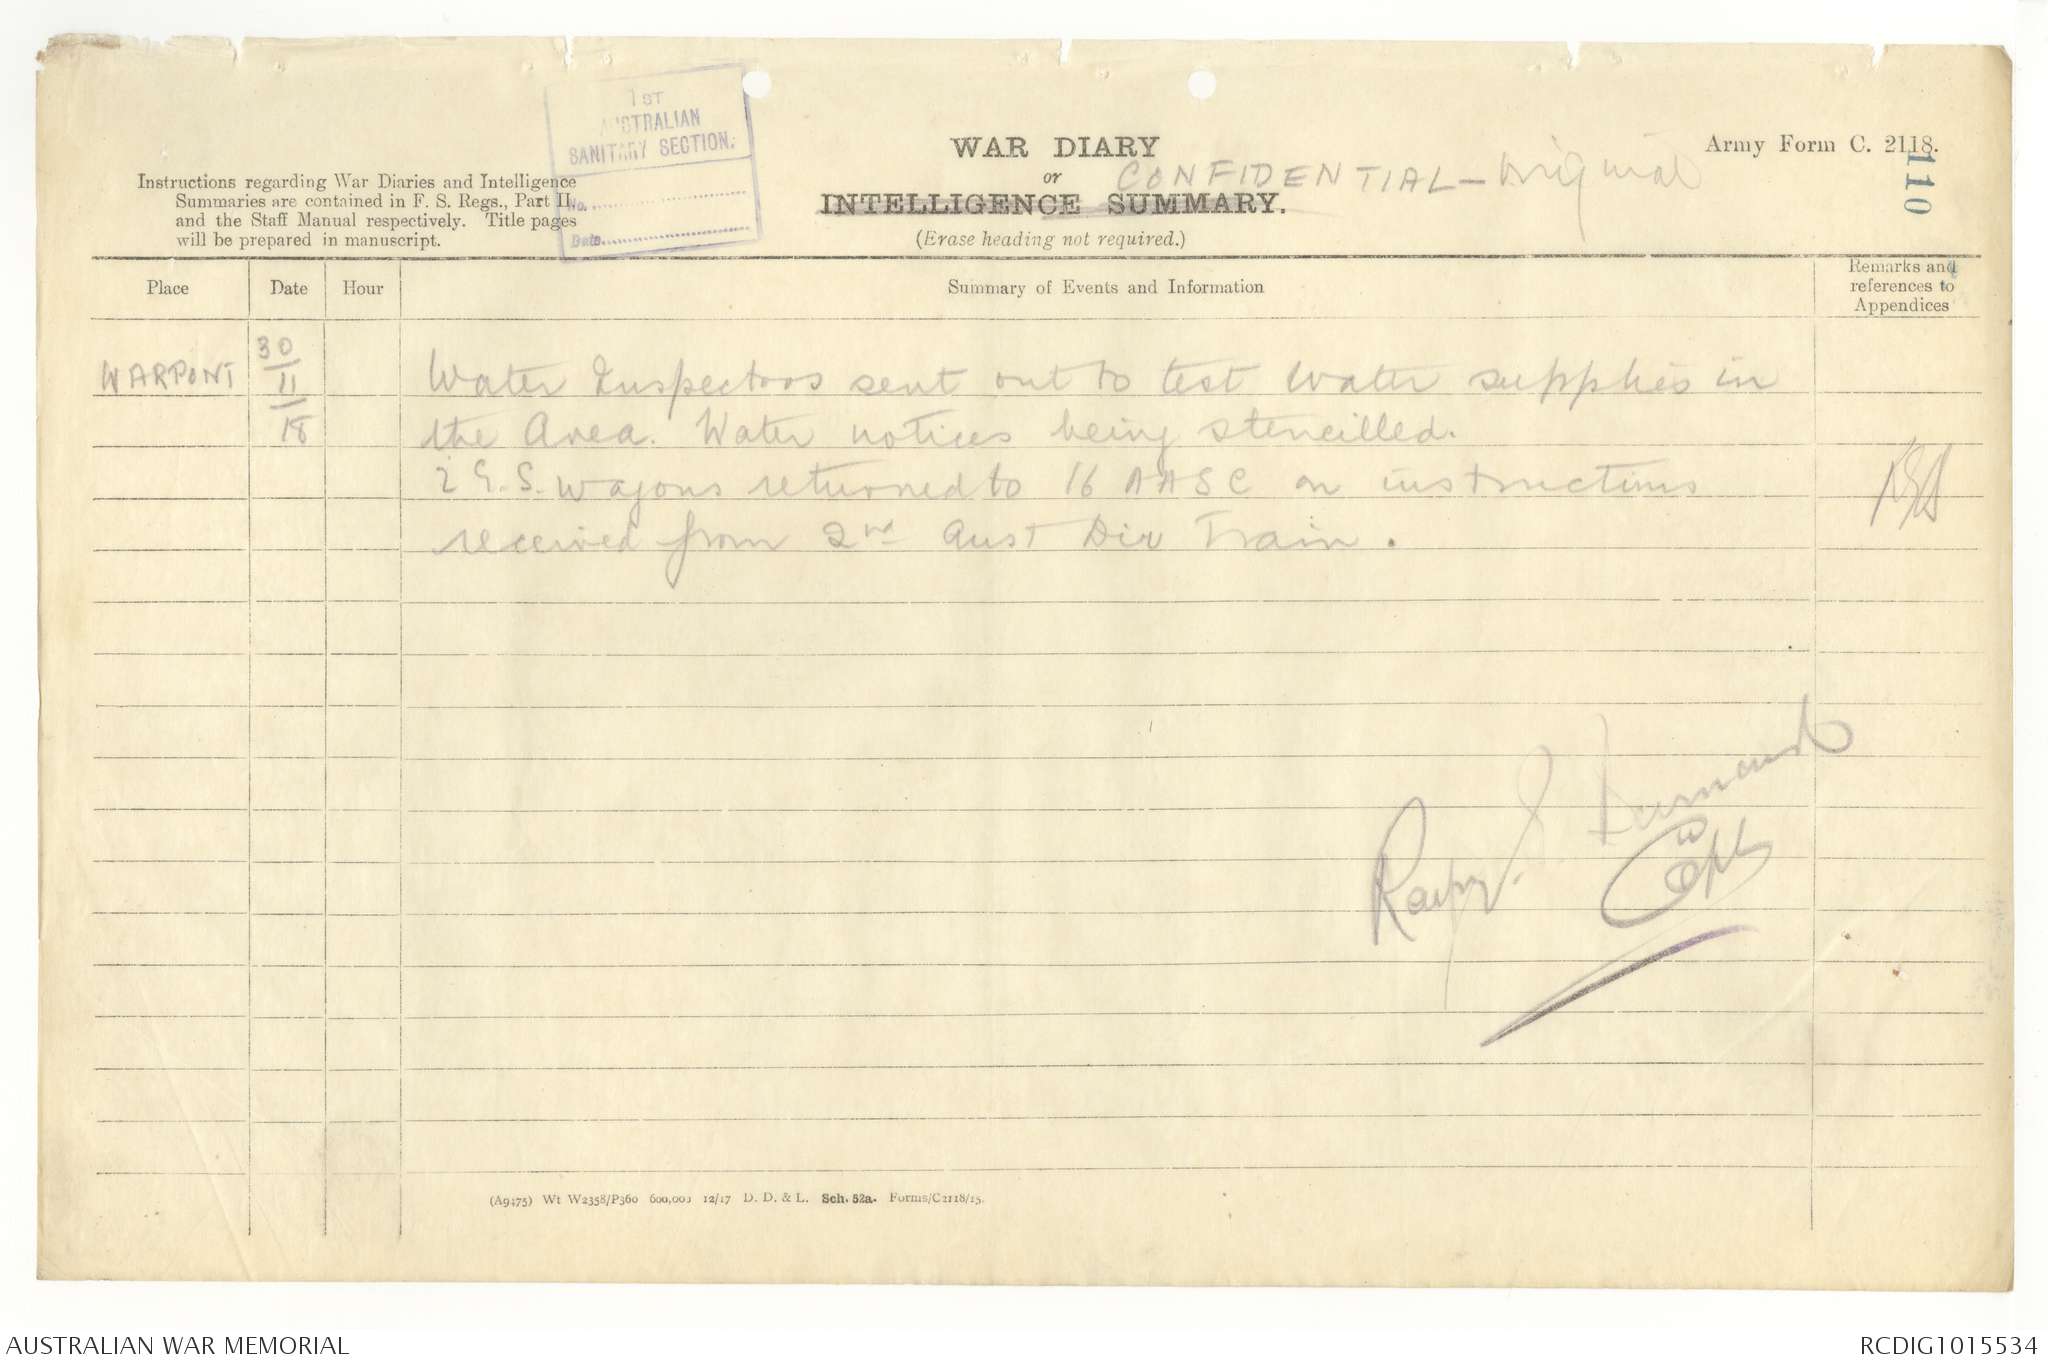 1ST
AUSTRALIAN
SANITARY SECTION.
No.
Date
WAR DIARY
or
INTELLIGENCE SUMMARY.
(Erase heading not required.)
CONFIDENTIAL - Original
Army Form C. 2118.
110
Instructions regarding War Diaries and Intelligence
Summaries are contained in F. S. Regs., Part II.
and the Staff Manual respectively. Title pages
will be prepared in manuscript.
Place
Date
Hour
Summary of Events and Information
Remarks and
references to
Appendices
WARPONT
30
11
18
Water Inspectors sent out to test water supplies in
the Area. Water notices being stencilled.
2 G.S. wagons returned to 16 AASC on instructions
received from 2nd Aust Div Train.
Capt
(A9475) Wt W2358/P360 600,000 12/17 D. D. & L. Sch. 52a. Forms/C2118/15.
AUSTRALIAN WAR MEMORIAL
RCDIG1015534